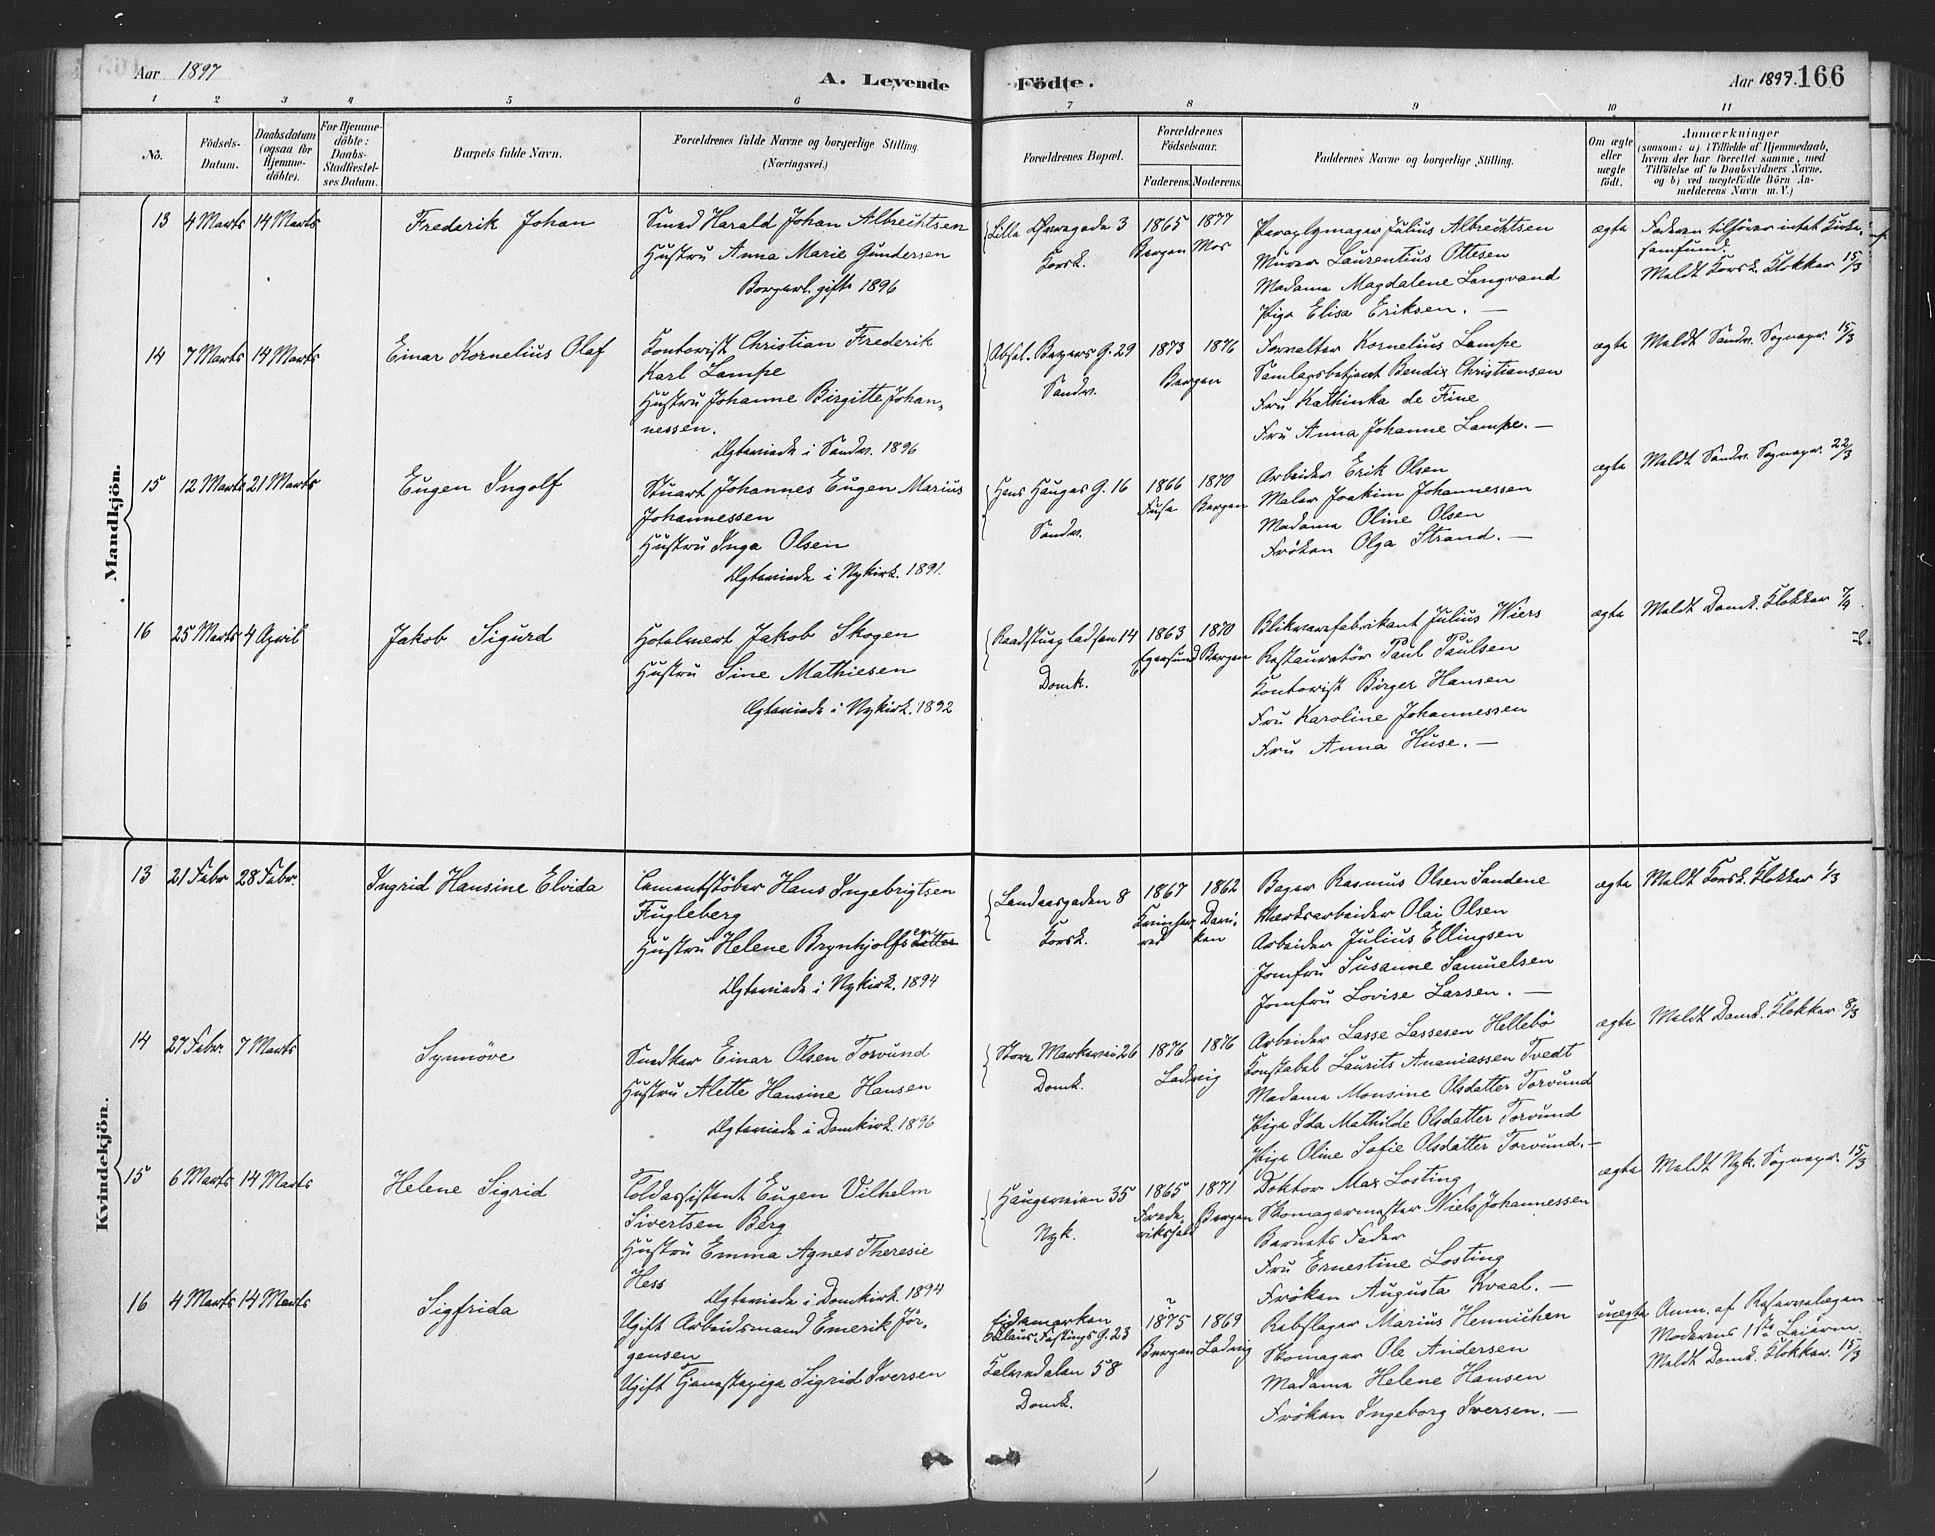 Aar 1897
A. Levende
Födte.
Aar 1897. 166
1 2 3 4 5 6 7 8 9 10 11
No.
Födsels-
Datum.
Daabsdatum
(ogsaa for
Hjemme-
döbte).
For Hjemme-
döbte:
Daabs-
Stadfæstel-
ses Datum.
Barnets fulde Navn.
Forældrenes fulde Navne og borgerlige Stilling.
(Næringsvei.)
Forældrenes Bopæl.
Forældrenes
Födselsaar.
Faderens. Moderens.
Faddernes Navne og borgerlige Stilling.
Om ægte
eller
uægte
födt.
Anmærkninger
(saasom: a) i Tilfælde af Hjemmedaab,
hvem der har forrettet samme, med
Tilföielse af to Daabsvidners Navne,
og b) ved uægtefödte Börn An-
melderens Navn m. V.)
Mandkjön.
13 4 Marts 14 Marts
Frederik Johan
Smed Harald Johan Albrechtsen
Hustru Anna Marie Gundersen
Borgerl. gifte 1896
Lille Øvregade 3
Korsk.
1865 1877
Bergen Mos
Paraplymager Julius Albrechtsen
Murer Laurentius Ottesen
Madame Magdalene Langvand
Pige Elisa Eriksen. —
ægte
Faderen tilhører intet Kirke-
samfund.
Meldt Korsk. Klokker 15/3
14 7 Marts 14 Marts
Einar Kornelius Olaf
Kontorist Christian Frederik
Karl Lampe
Hustru Johanne Birgitte Johan-
nessen.
Ægteviede i Sandv. 1896
Absal. Beyers G. 29
Sandv.
1873 1876
Bergen
Forvalter Kornelius Lampe
Samlagsbetjent Bendix Christiansen
Fru Kathinka de Fine
Fru Anna Johanne Lampe. —
ægte
Meldt Sandv. Sognepr. 15/3
15 12 Marts 21 Marts
Eugen Ingolf
Stuart Johannes Eugen Marius
Johannessen
Hustru Inga Olsen
Ægteviede i Nykirk. 1891.
Hans Hauges G. 16
Sandv.
1866 1870
Fuse Bergen
Arbeider Erik Olsen
Maler Joakim Johannessen
Madame Oline Olsen
Frøken Olga Strand. —
ægte
Meldt Sandv. Sognepr. 22/3
16 25 Marts 4 April
Jakob Sigurd
Hotelvert Jakob Skogen
Hustru Sine Mathiesen
Ægteviede i Nykirk. 1892
Raadstuepladsen 14
Domk.
1863 1870
Egersund Bergen
Blikvarefabrikant Julius Wiers
Restauratør Paul Paulsen
Kontorist Birger Hansen
Fru Karoline Johannessen
Fru Anna Huse. —
ægte
Meldt Domk. Klokker 7/4
Kvindekjön.
13 21 Febr 28 Febr.
Ingrid Hansine Elvida
Cementstøber Hans Ingebrigtsen
Fugleberg
Hustru Helene Brynhjolfsdatter
Ægteviede i Nykirk. 1894
Landaasgaden 8
Korsk.
1867 1862
Kvinher- Davi-
red ken
Bager Rasmus Olsen Sandene
Værksarbeider Olai Olsen
Arbeider Julius Ellingsen
Jomfru Susanne Samuelsen
Jomfru Lovise Larsen. —
ægte
Meldt Korsk. Klokker 1/3
14 27 Febr. 7 Marts
Synnöve
Snedker Einar Olsen Torvund
Hustru Alette Hansine Hansen
Ægteviede i Domkirk. 1896
Store Markevei 26
Domk.
1876 1876
Ladvig
Arbeider Lasse Lassesen Hellebö
Konstabel Laurits Ananiassen Tvedt
Madame Monsine Olsdatter Torvund
Pige Ida Mathilde Olsdatter Torvund
Pige Oline Sofie Olsdatter Torvund. —
ægte
Meldt Domk. Klokker 8/3
15 6 Marts 14 Marts
Helene Sigrid
Toldassistent Eugen Vilhelm
Sivertsen Berg
Hustru Emma Agnes Theresie
Hess
Ægteviede i Domkirk. 1894
Haugeveien 35
Nyk.
1865 1871
Frede- Bergen
rikshald
Doktor Max Losting
Skomagermester Niels Johannessen
Barnets Fader
Fru Ernestine Losting
Frøken Augusta Kvaal. —
ægte
Meldt Nyk. Sognepr. 15/3
16 4 Marts 14 Marts
Sigfrida
Ugift Arbeidsmand Emerik Jör-
gensen
Ugift Tjenestepige Sigrid Iversen
Eidemarken
Claus Fastings G. 23
Kalvedalen 58
Domk.
1875 1869
Bergen Ladvig
Rebslager Marius Hennichen
Skomager Ole Andersen
Madame Helene Hansen
Frøken Ingeborg Iversen. —
uægte
Anm. af Reservelægen
Moderens 1ste Leierm.
Meldt Domk. Klokker. 15/3